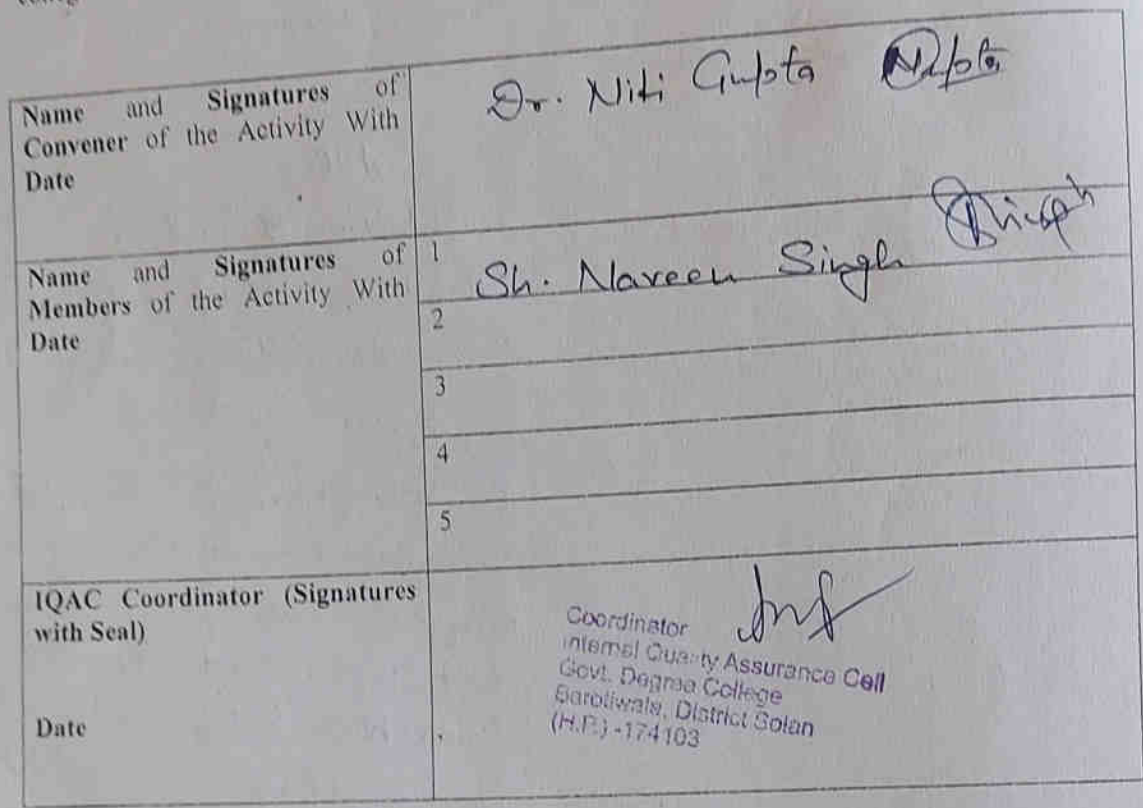 Name and Signatures of
Convener of the Activity With
Date
Dr. Niti Gupta
Name and Signatures of
Members of the Activity With
Date
1 Sh. Naveen Singh Singh
2
3
4
5
IQAC Coordinator (Signatures
with Seal)
Date
Coordinator
Internal Quality Assurance Cell
Govt. Degree College
Barotiwala, District Solan
(H.P.) -174103